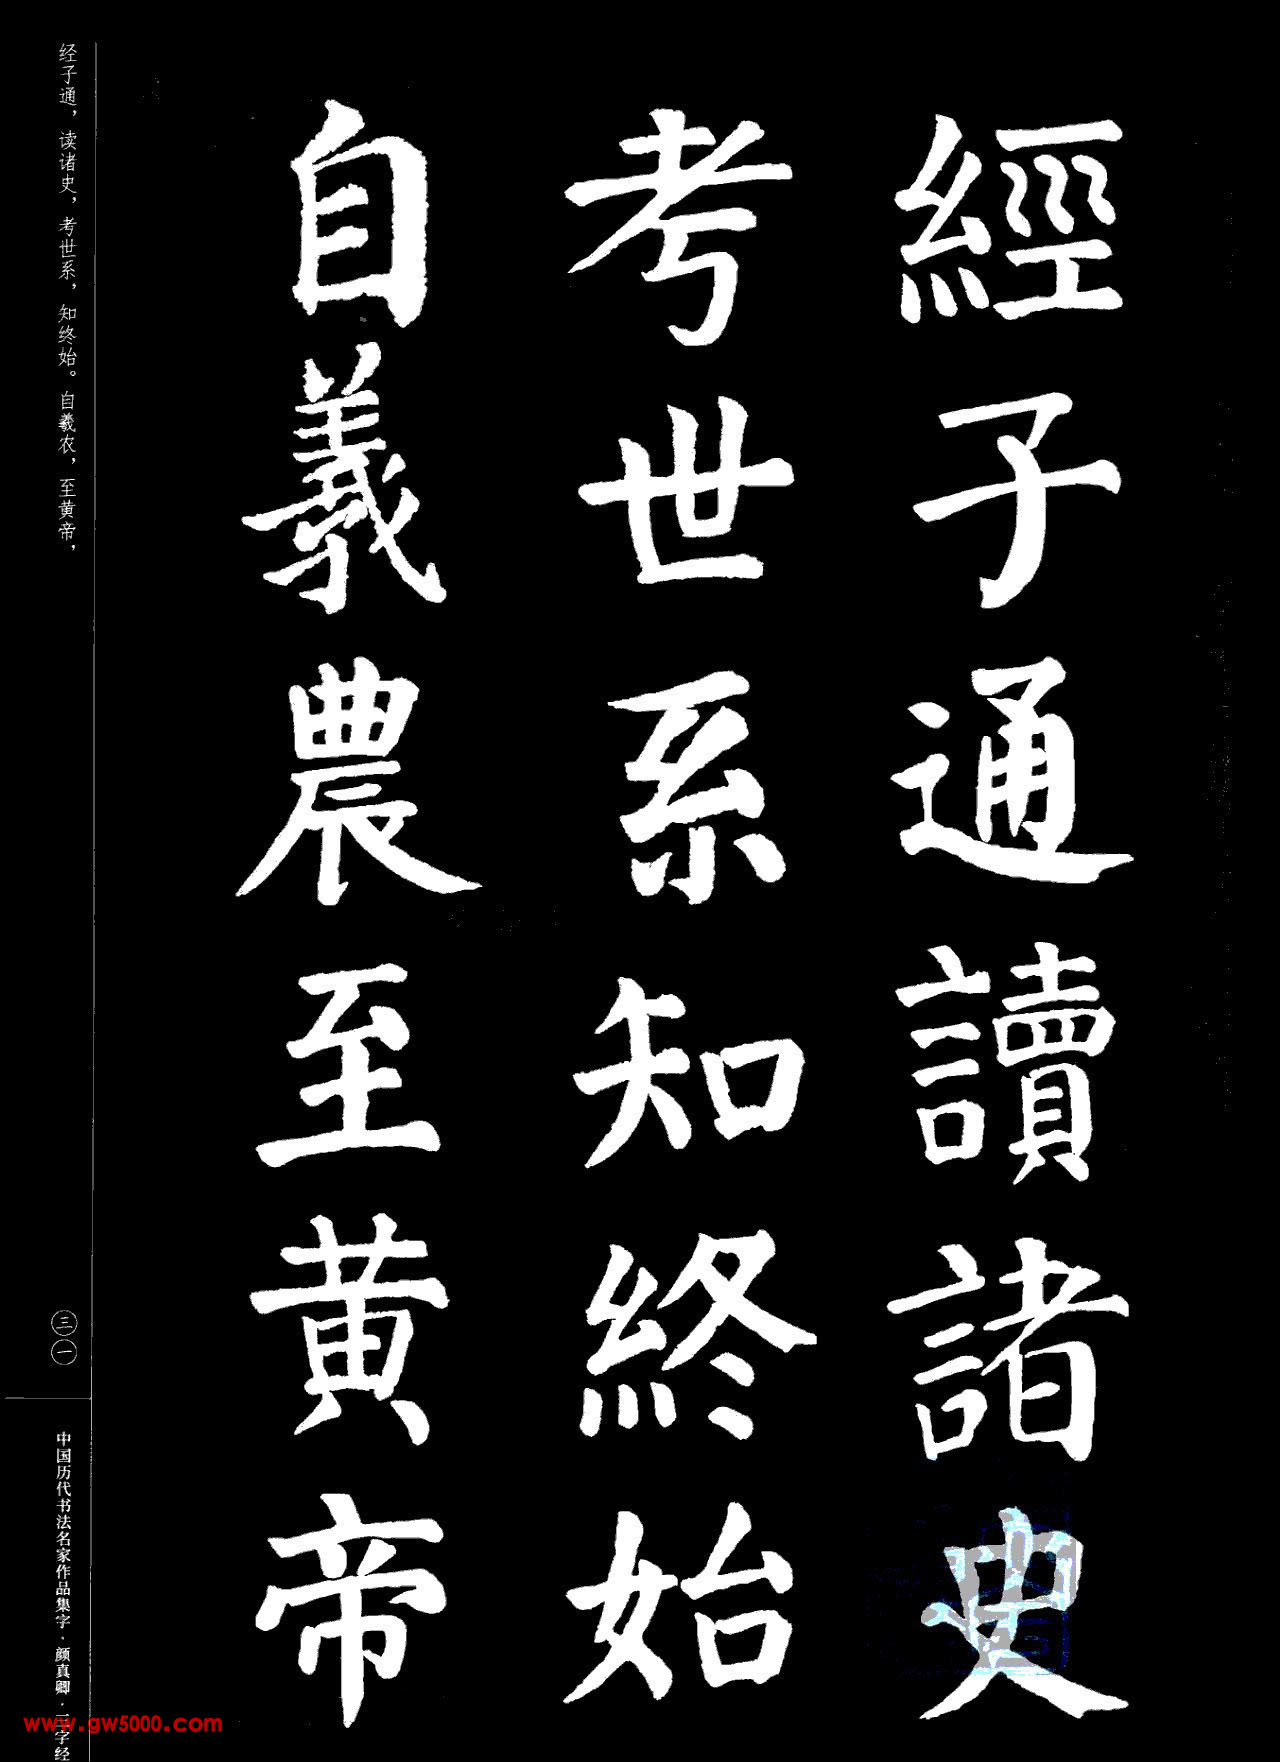 經子通讀諸史
考世系知終始
自羲農至黄帝
经子通，读诸史，考世系，知终始。自羲农，至黄帝，
三一
中国历代书法名家作品集字·颜真卿·三字经
www.gw5000.com